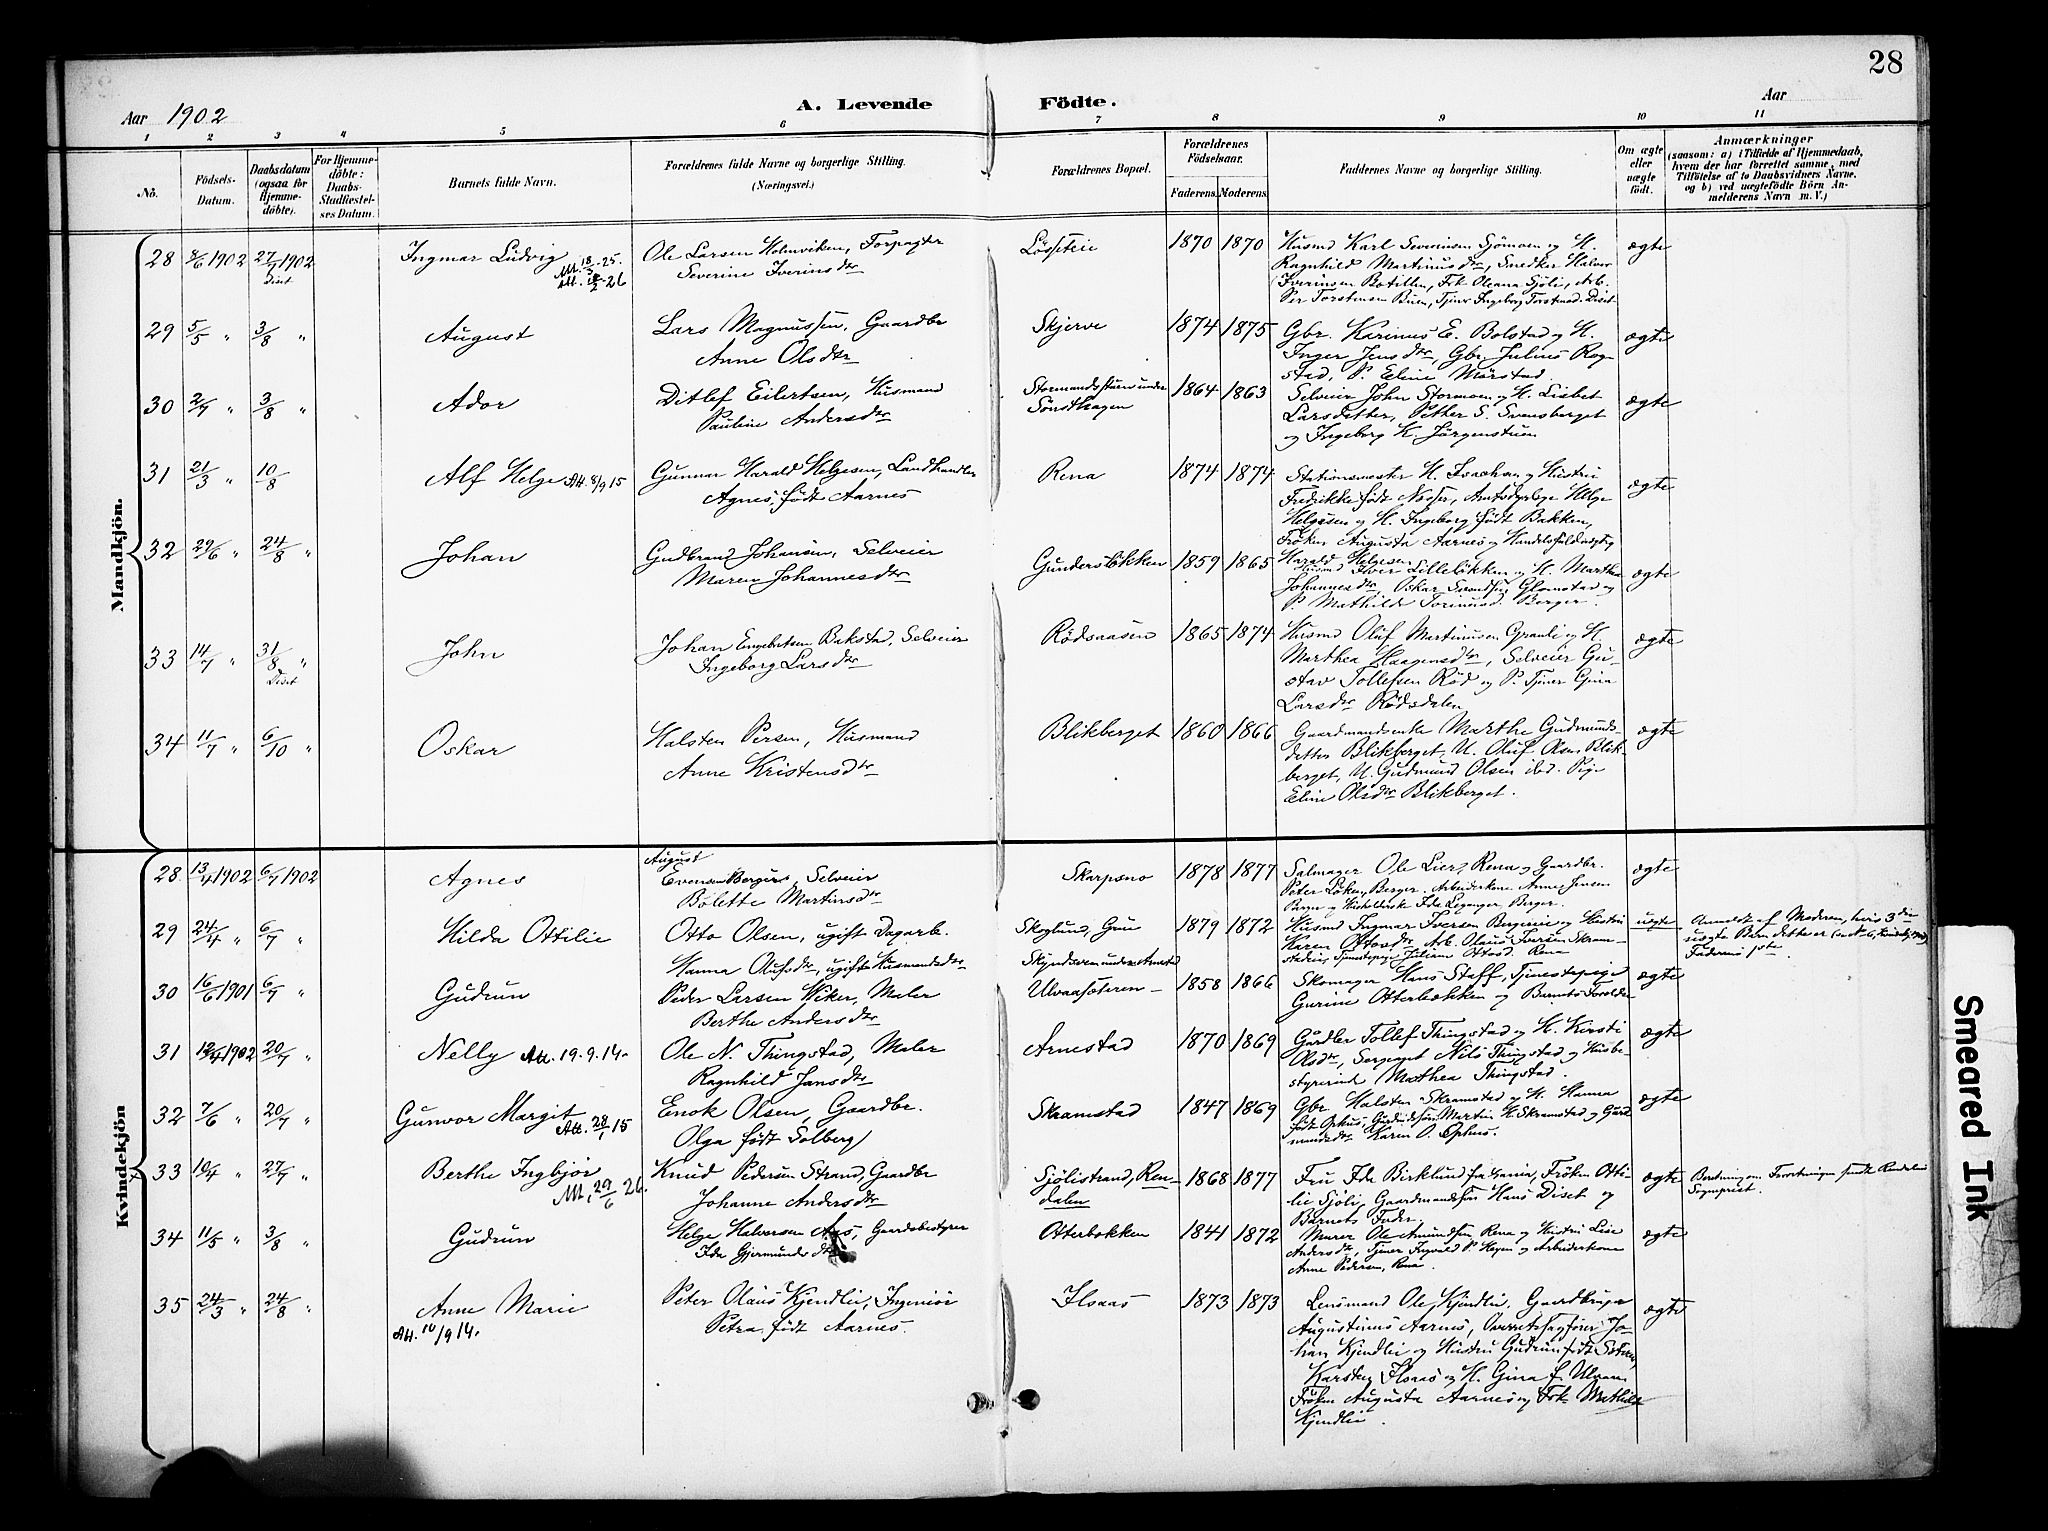 28
Aar 1902
A. Levende Födte.
Aar
1 2 3 4 5 6 7 8 9 10 11
No.
Födsels-Datum.
Daabsdatum (ogsaa for Hjemmedöbte).
For Hjemmedöbte: Daabs-Stadfæstelses Datum.
Barnets fulde Navn.
Forældrenes fulde Navne og borgerlige Stilling.
(Næringsvei.)
Forældrenes Bopæl.
Forældrenes Födselsaar.
Faderens. Moderens.
Faddernes Navne og borgerlige Stilling.
Om ægte eller uægte födt.
Anmærkninger
(saasom: a) i Tilfælde af Hjemmedaab, hvem der har forrettet samme, med Tilföielse af to Daabsvidners Navne, og b) ved uægtefödte Börn Anmelderens Navn m. V.)
Mandkjön.
28 1902 27/7 1902 Diset Ingmar Ludvig Ole Larsen Holmviken, Forpagter
Severine Iverinsdtr 1870 1870 Husmd Karl Severinsen Sjömoen og H.
Ragnhild Martinusdtr, Snedker Halvor
ægte
29 5/5 " 3/8 " August Lars Magnussen, Gaardbr
Anne Olsdtr Skjerve 1874 1875 Gbr. Karinus E. Bolstad og H.
Inger Jensdtr, Gbr. Julius Rogstad, P. Eline Mörstad.
ægte
30 2/7 " 3/8 " Ador Ditlef Eilertsen, Husmand
Pauline Andersdtr Sönsthagen 1864 1863 Selveier John Stormoen og H. Lisbet
Larsdatter, Pether S. Svensberget
og Ingeborg K. Jörgenstuen
ægte
31 21/3 " 10/8 Alf Helge Att. 8/9 15 Gunnar Harald Helgesen, Landhandler
Agnes, födt Aarnes Rena 1874 1874 Stationsmester H. Isachsen og Hustru
Fredrikke födt Helge
Helgesen og H. Ingeborg födt Bakken,
Fröken Augusta Aarnes og
Harald Helgesen
ægte
32 29/6 " 24/8 " Johan Gudbrand Johansen, Selveier
Maren Johannesdtr Gundersløkken 1859 1865 Husmd Iver Lilleløkken og H. Marthe
Johannesdtr, Oskar Glomstad og
P. Mathilde Berger.
ægte
33 14/7 " 31/8 " Diset John Johan Engebretsen Bakstad, Selveier
Ingeborg Larsdtr Rödsaasen 1865 1874 Husmd Oluf Martinusen Granli og H.
Marthea Haagensdtr, Selveier Gustav Tollefsen Röd og P. Tjener Gina
Larsdtr Rödsdalen
ægte
34 11/7 " 6/10 " Oskar Halsten Persen, Husmand
Anne Kristensdtr Blikberget 1860 1866 Gaardmandsenke Marthe Gudmundsdatter Blikberget, U. Oluf Olsen Blikberget, U. Gudmund Olsen ibd. Pige
Eline Olsdtr Blikberget.
ægte
Kvindekjön
28 13/4 1902 6/7 1902 Agnes August
Evensen Berger, Selveier
Bolette Martinsdtr Skarpsno 1878 1877 Salmager Ole Lier, Rena og Gaardbr.
Peter Løken, Berger. Arbeiderkone Anne Jensen
ægte
29 24/4 " 6/7 " Hilda Ottilie Otto Olsen, ugift Dagarb.
Hanna Olufsdtr, ugift Husmandsdtr Skoglund, 1879 1872 Husmd Ingmar Iversen Bergerseie og Hustru
Karen Ottosdtr, Arb. Olaus Iversen Skramstadeie, Tjenestepige Juliane Ottosd. Rena
uægte Anmeldt af Moderen, hvis 3die
uægte Barn dette er
Faderens 1ste.
30 16/6 1901 6/7 " Gudrun Peder Larsen Wiker, Maler
Berthe Andersdtr Ulvaasæteren 1858 1866 Skomager Hans Staff, Tjenestepige
Gurine Otterbækken og Barnets Forældre
ægte
31 1902 20/7 " Nelly Att. 19.9.14. Ole N. Thingstad, Maler
Ragnhild Jansdtr Arnestad 1870 1869 Gårdbr Tollef Thingstad og H. Kirsti
Olsdtr, Sergeant Nils Thingstad og Husbestyrerinde Mathea Thingstad.
ægte
32 7/6 " 20/7 " Gunvor Margit Att. 28/1 15 Enok Olsen, Gaardbr.
Olga født Solberg Skramstad 1847 1869 Gbr. Halsten Skramstad og H. Hanna
født Ophus, Martin H. Skramstad og
Karen O. Ophus.
ægte
33 10/4 " 27/7 " Berthe Ingbjør Att. 29/6 26. Knud Pedersen Strand, Gaardbr
Johanne Andersdtr Sjölistrand, Rendalen 1868 1877 Fru Ida Birklund fra Fröken Ottilie Sjöli, Gaardmandssøn Hans Diset og
Barnets Fader.
ægte Beretning om Forretningen sendt Rendalens
Sognepræst.
34 11/5 " 3/8 " Gudrun Helge Halvorsen Aas, Gaardsbestyrer
Ida Gjermundsdtr Otterbækken 1841 1872 Murer Ole Amundsen, Rena og Hustru Lise
Andersdtr, Tjener Ingvald P. Hagen og Arbeiderkone
Anne Pedersen, Rena.
ægte
35 24/3 " 24/8 " Anne Marie Att. 10/9 14. Peter Olaus Kjendlie, Ingeniør
Petra, født Aarnes. Ilsaas 1873 1873 Lensmand Ole Kjendlie, Gaardbruger
Augustinus Aarnes, Overretssagfører Johan Kjendlie og Hustru Gudrun født
Karsten Ilsaas og H. Gina f. Ulvaa
Fröken Augusta Aarnes og Frk. Mathilde
Kjendlie.
ægte
Smeared Ink